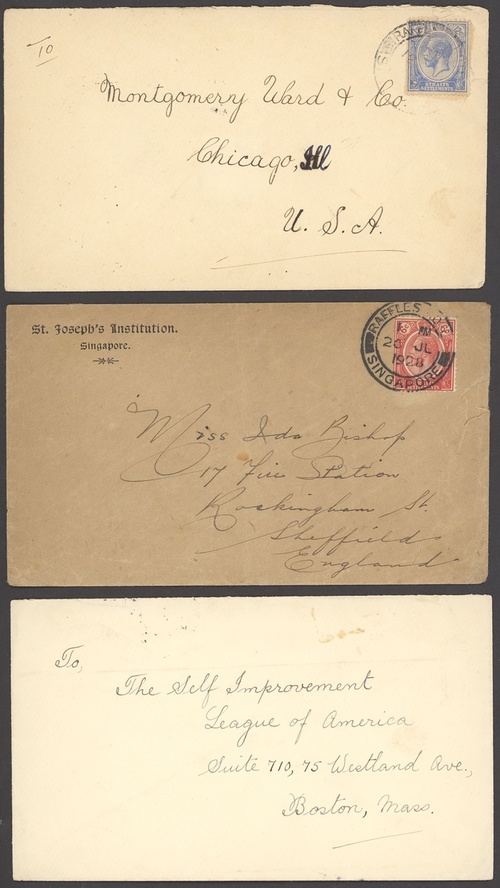 To
Montgomery Ward & Co
Chicago, Ill
U. S. A.
SETTLEMENTS
St. Joseph's Institution.
Singapore.
RAFFLES
20 JL
1928
SINGAPORE
Miss Ida Bishop
17 Fire Station
Rockingham St.
Sheffield
England
To,
The Self Improvement
League of America
Suite 710, 75 Westland Ave.,
Boston, Mass.